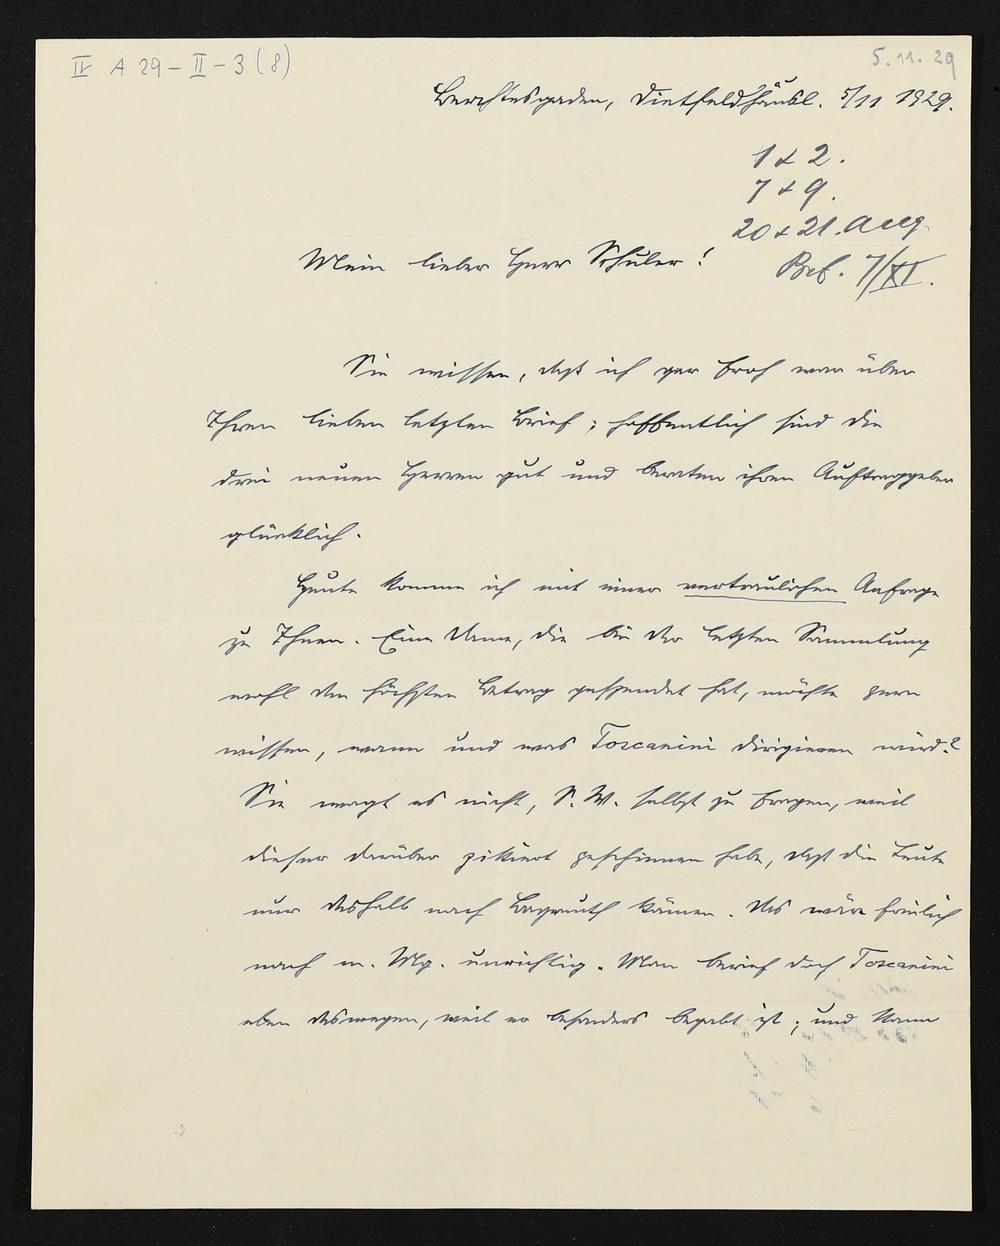 IV A 29 - II - 3 (8)
5. 11. 29
Berchtesgaden, Dietfeldhäusl. 5/11 1929.
1 & 2.
7 & 9.
20 & 21. Aug.
7/XI.
Mein lieber Herr Schuler!
Sie wissen, daß ich gar froh war über
Ihren lieben letzten Brief; hoffentlich sind die
drei neuen Herren gut und beraten ihren Auftraggeber
glücklich.
Heute komme ich mit einer vertraulichen Anfrage
zu Ihnen. Eine Dame, die bei der letzten Sammlung
wohl den höchsten Betrag gespendet hat, möchte gern
wissen, wann und was Toscanini dirigieren wird?
Sie wagt es nicht, S. W. selbst zu fragen, weil
dieser darüber pikiert geschienen habe, daß die Leute
nur deshalb nach Bayreuth kämen. Das wäre freilich
nach m. Mg. unrichtig. Man berief doch Toscanini
eben deswegen, weil er besonders begabt ist; und kann